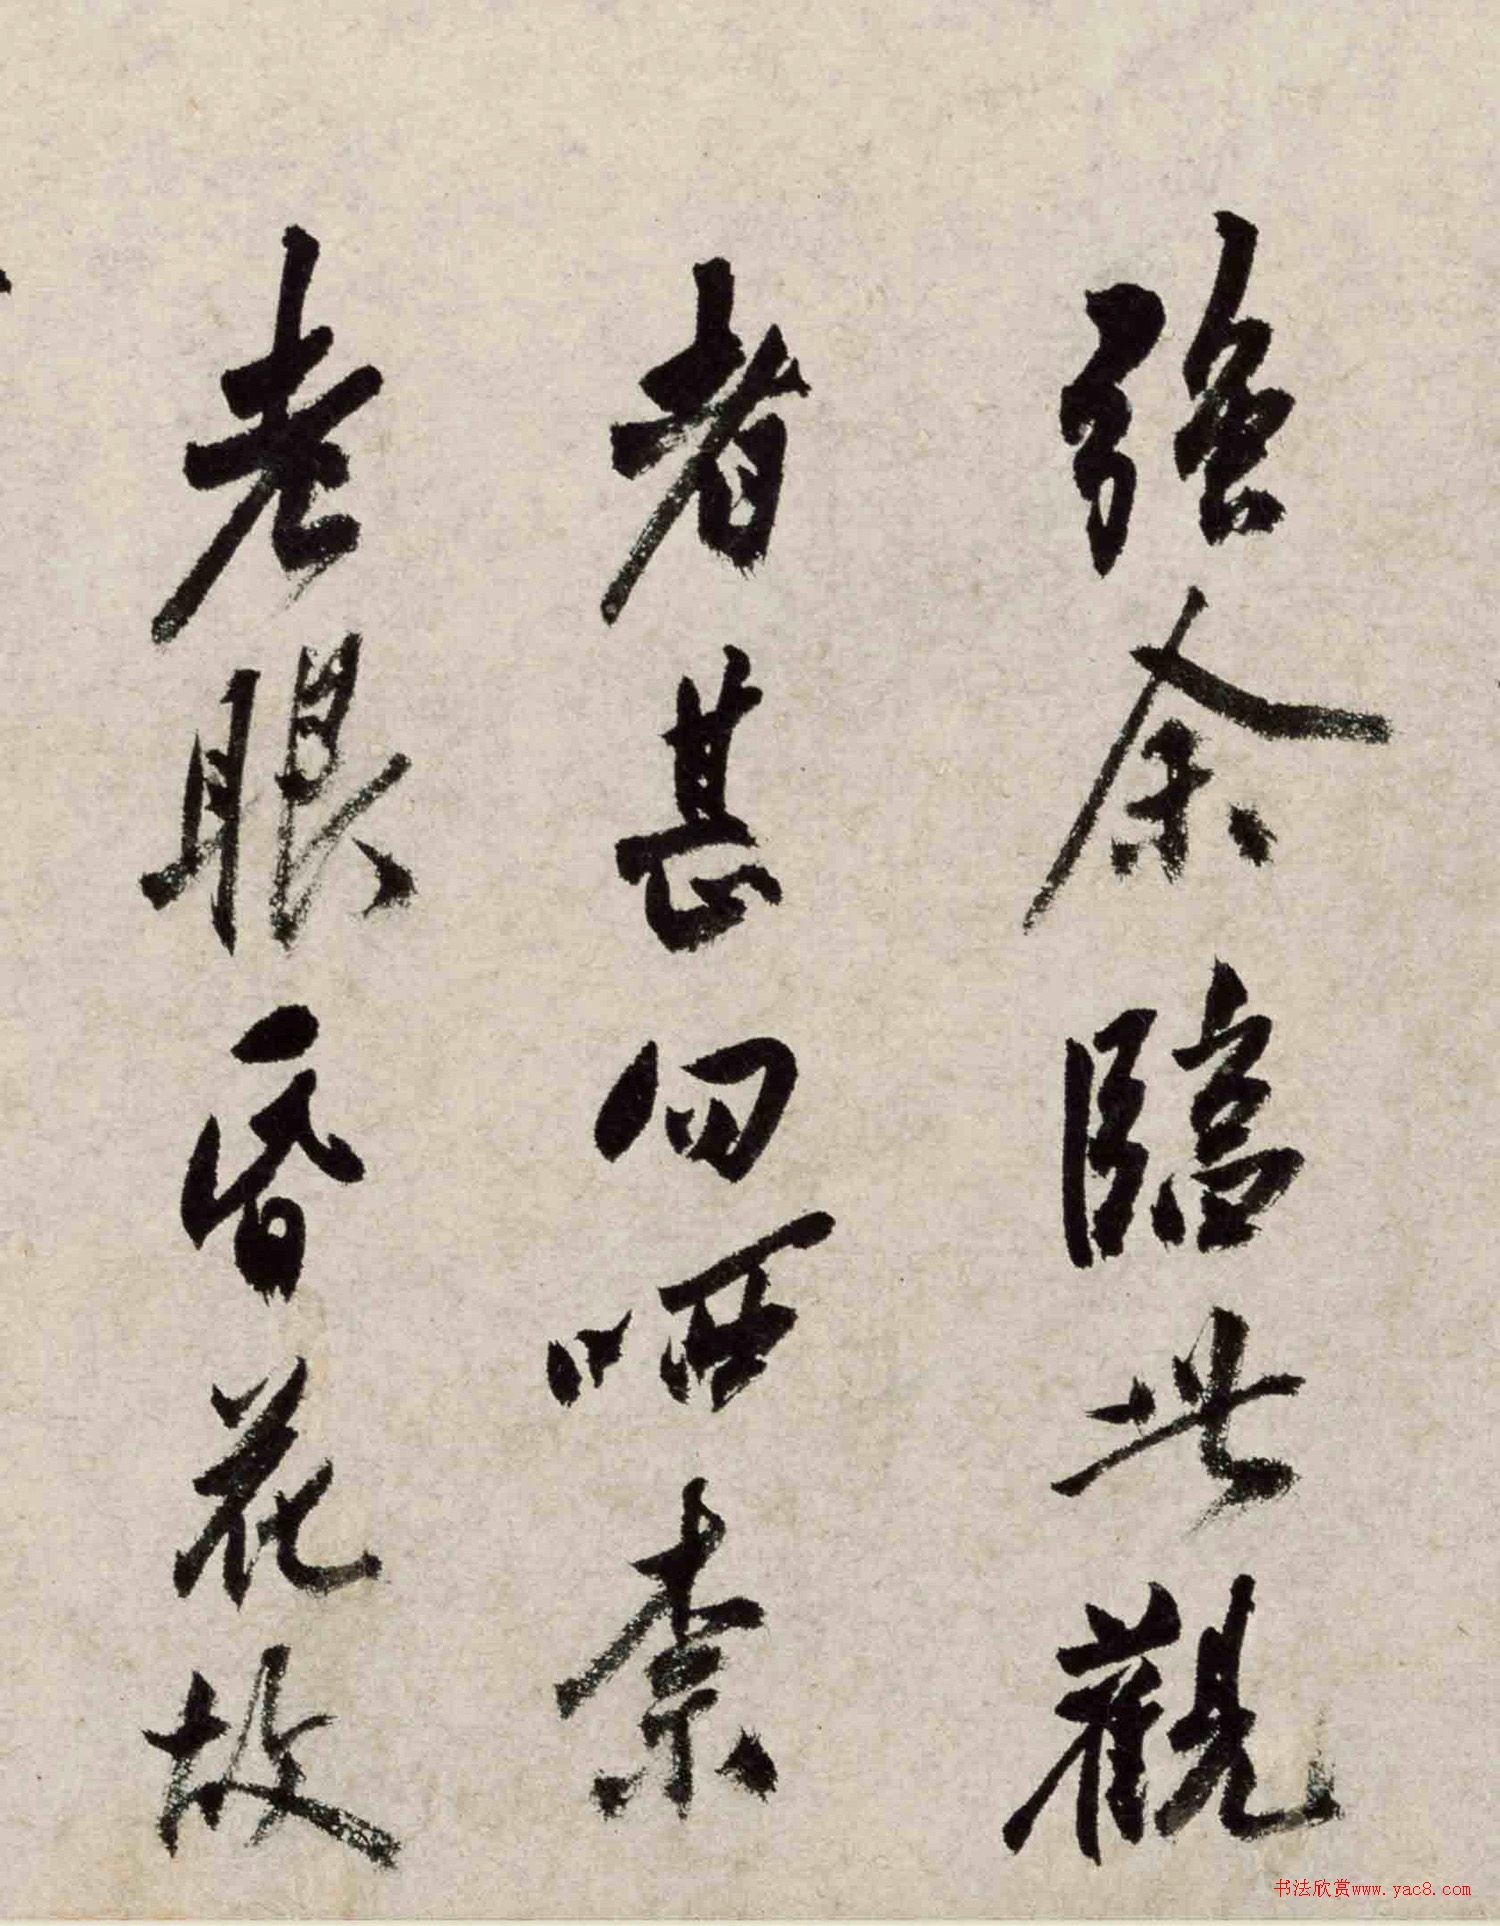 強余臨此觀
者甚勿哂柰
老眼昏花故
书法欣赏www.yac8.com